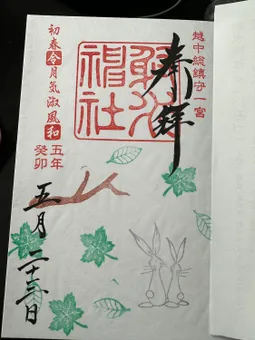 越中総鎮守一宮
奉拝
射水神社
初春令月気淑風和
五年
癸卯
五月二十三日